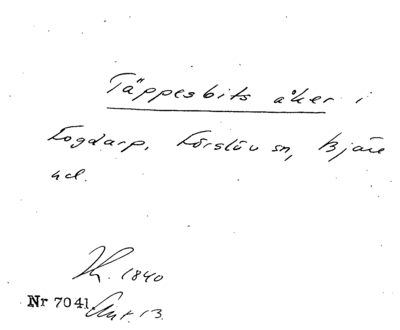 Täppesbits åker i
Logdarp, Förslöv sn, Bjäre
hd.
1840
Nr 7041. 13.